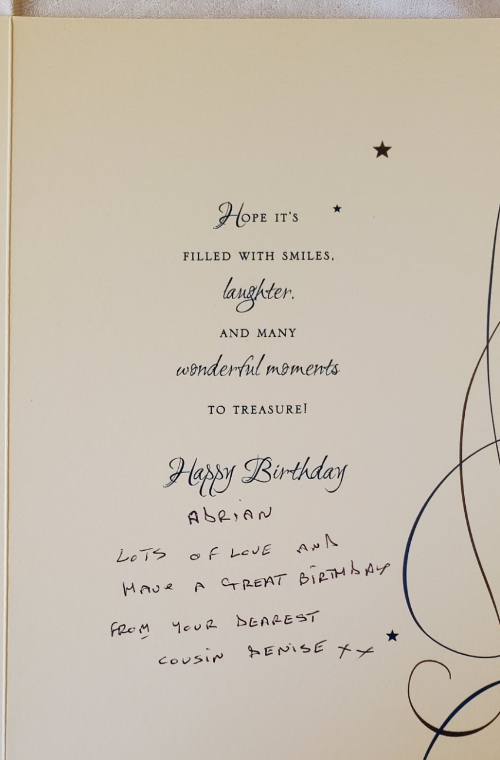 Hope it's
filled with smiles,
laughter,
and many
wonderful moments
to treasure!
Happy Birthday
ADRIAN
LOTS OF LOVE AND
HAVE A GREAT BIRTHDAY
FROM YOUR DEAREST
COUSIN DENISE xx